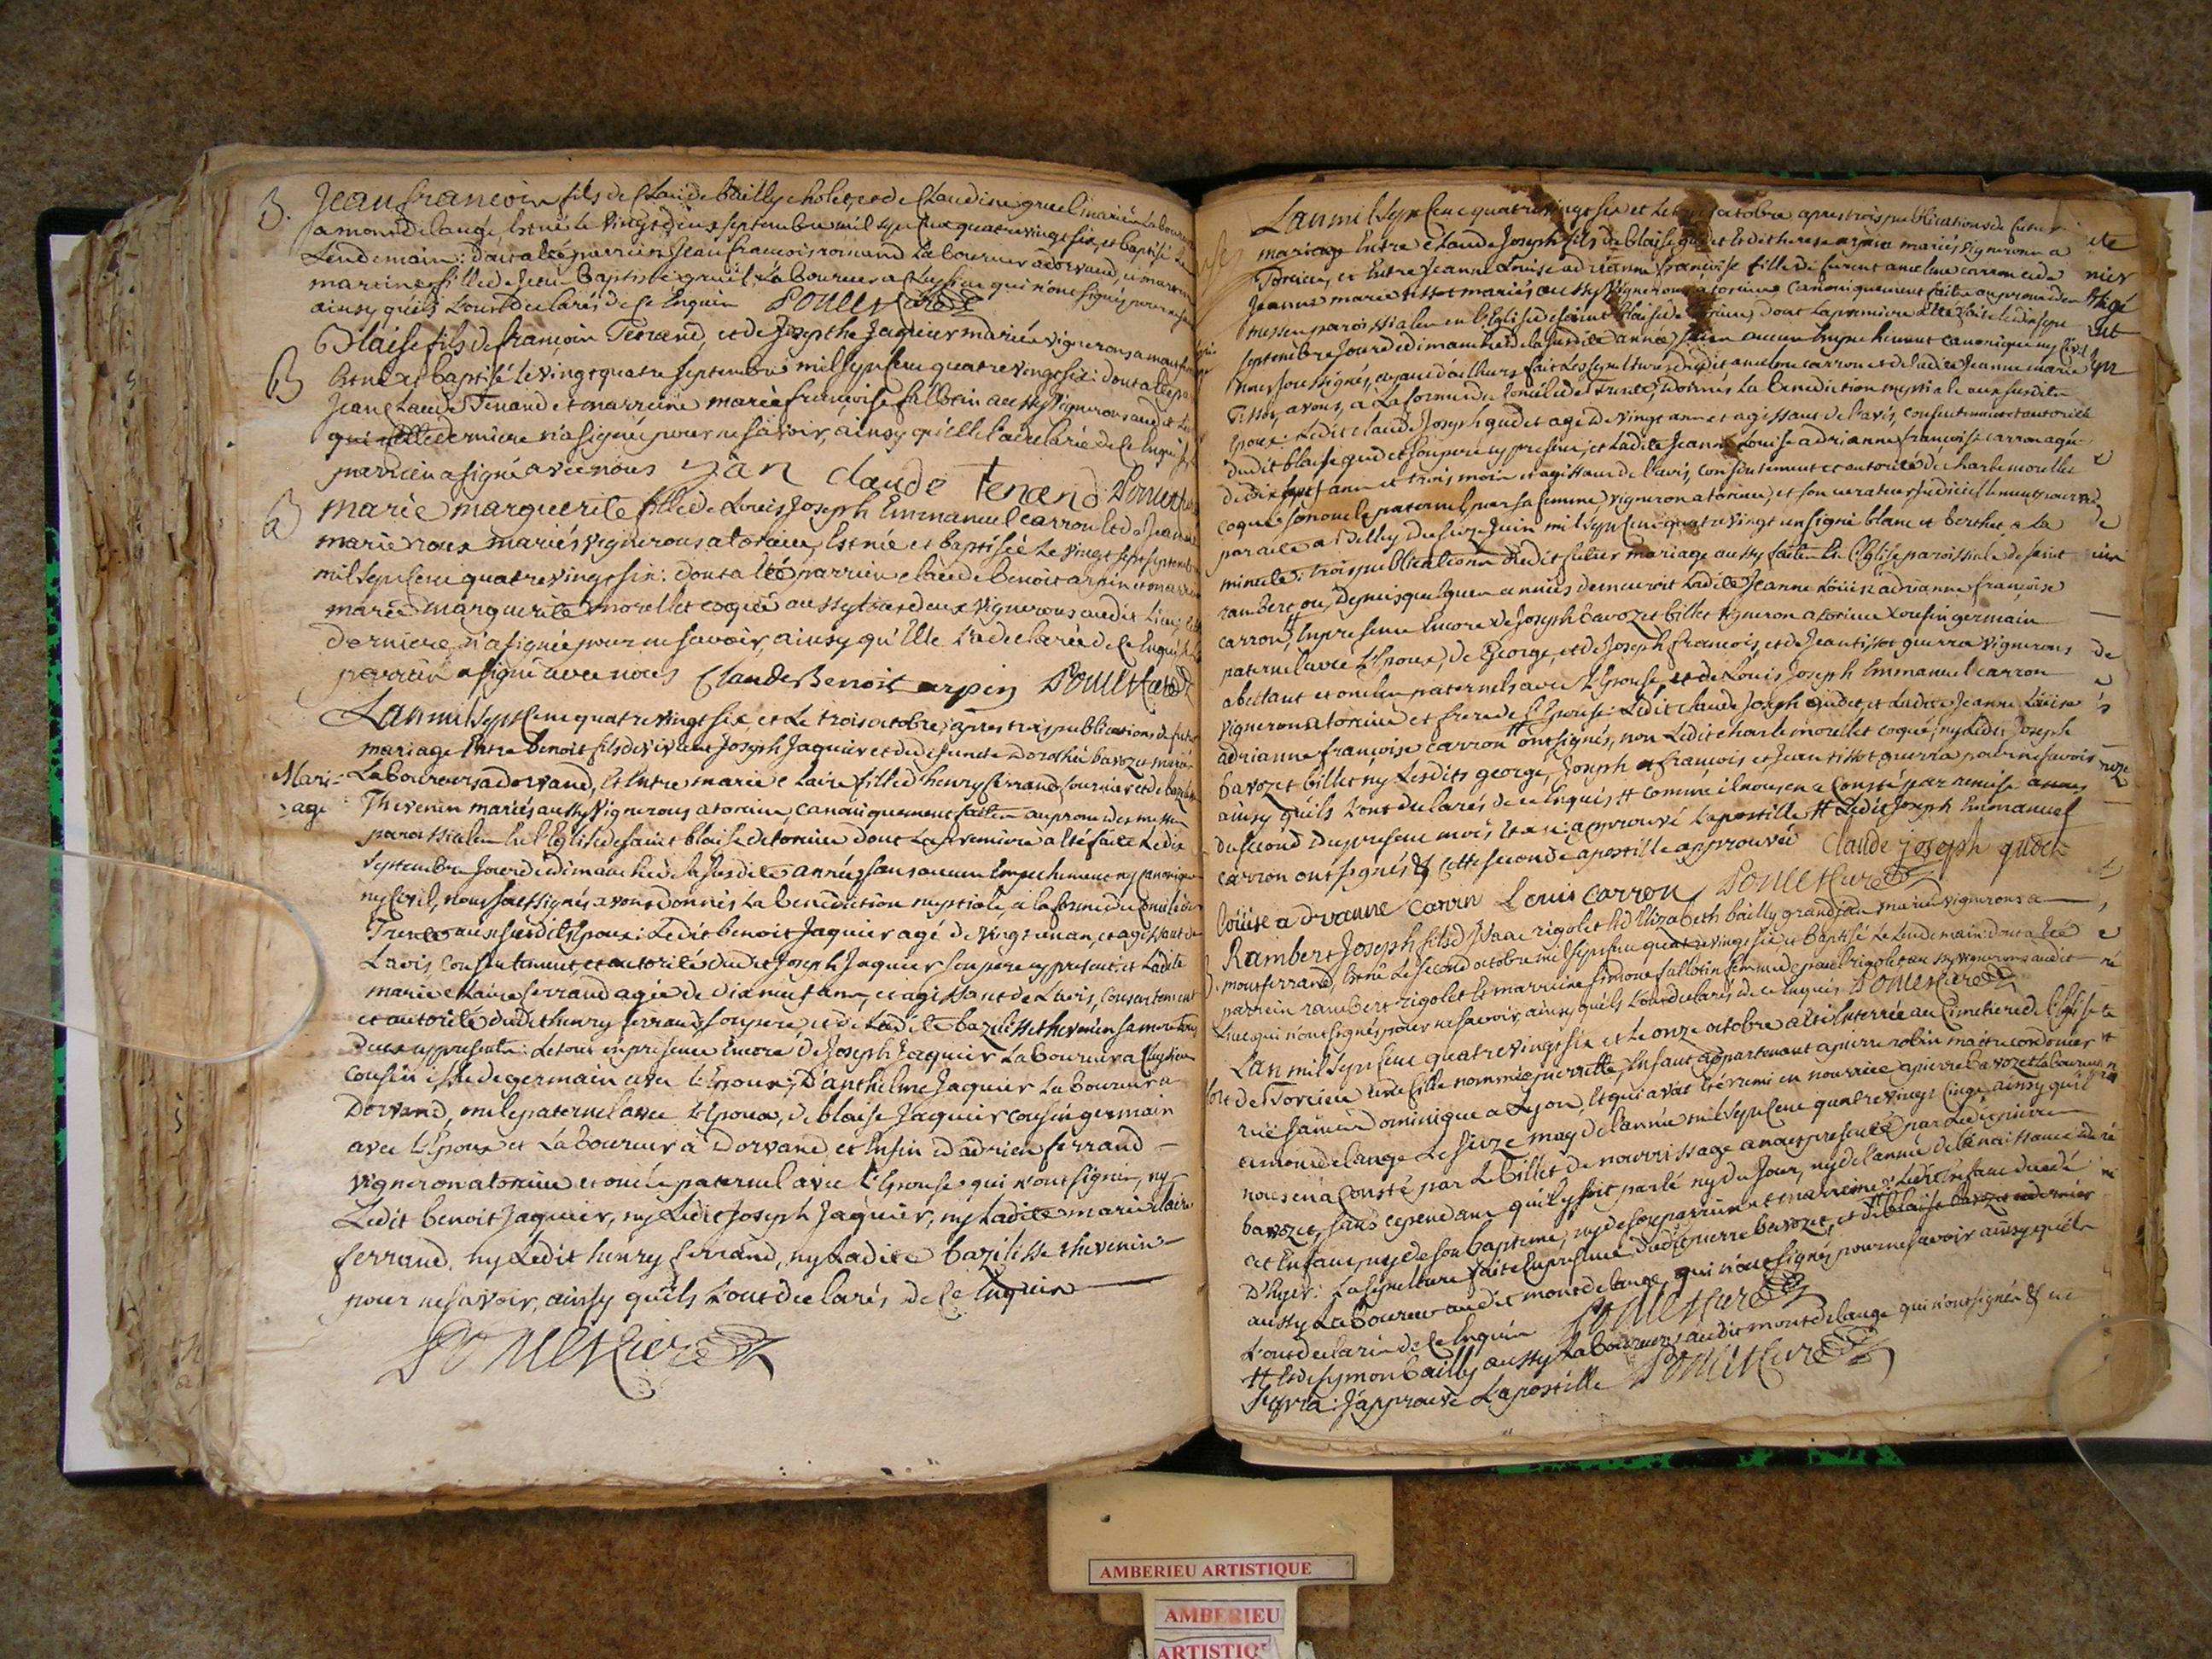 B. Jean francois fils de Claude bailly cholet, et de Claudine gruel mariés Laboureurs
a montdelange, est né le vingt deux septembre mil sept cent quatre vingt six, et baptisé le
Lendemain: dont a été parrien Jean francois romand Laboureur a dorvand, et marreine
marine fille de Jean Baptiste gruel Laboureur a qui n'ont signés pour ne savoir
ainsy qu'ils l'ont declarés de ce Enquis Poncet Curé
B Blaise fils de francois Tenand, et de Josephe Jaquier mariés vignerons a montferrand
Est né et baptisé le vingt quatre septembre mil sept cent quatre vingt six: dont a été parrien
Jean Claude Tenand et marreine marie francoise fallotin aussy vignerons audit Lieu
qui cette derniere n'a signé pour ne savoir, ainsy qu'elle l'a declarée de ce Enquise
parrien a signé avec nous Jan claude tenand Poncet Curé
B marie marguerite fille de Louis Joseph Emmanuel carron et de Jeanne
marie roux mariés vignerons a torcieu, Est née et baptisée Le vingt sept septembre
mil sept cent quatre vingt six: dont a été parrien claude benoit arpin et marreine
marie marguerite morellet coqué aussy tous deux vignerons audit Lieu;
derniere n'a signée pour ne savoir, ainsy qu'Elle L'a declarée de ce Enquise
parrien a signé avec nous Claude Benoit arpin Poncet Curé
L'an mil sept Cent quatre vingt six, et Le trois octobre, apres trois publications de futur
mariage Entre benoit fils de vivant Joseph Jaquier et de defuncte Dorothée bavozet mariés
Mari= Laboureurs a dorvand, Et Entre marie Claire fille d'henry ferrand fournier et de bazilisse
=age Thevenin mariés aussy vignerons a torcieu, canoniquement faites au prone des messes
paroissiales En l'Eglise de saint blaise de torcieu dont La premiere a été faite Le dix
septembre Jour de dimanche de la susdite année; sans aucun Empechement ny canonique
ny Civil, nous soussignés avons donnés La benediction nuptiale, a la forme du Concile de
Trente aux susdits Epoux: Ledit benoit Jaquier agé de vingt un an, et agissant de
L'avis, consentement, et autorité dudit Joseph Jaquier son pere cy present; et Ladite
marie Claire ferrand agée de dix neuf ans, et agissant de L'avis, Consentement
et autorité dudit henry ferrand son pere, et de Ladite bazilisse thevenin sa mere tous
deux cy presents: Le tout en presence Encore de Joseph Jaquier Laboureur a
cousin issu de germain avec L'Epoux; D'anthelme Jaquier Laboureur a
Dorvand, oncle paternel avec L'Epoux, de blaise Jaquier cousin germain
avec L'Epoux et Laboureur a Dorvand et Enfin d'adrien ferrand -
vigneron a torcieu et oncle paternel avec L'Epouse qui n'ont signés, ny
Ledit benoit Jaquier, ny Ledit Joseph Jaquier, ny Ladite marie claire
ferrand, ny Ledit henry ferrand, ny Ladite bazilisse thevenin -
pour ne savoir, ainsy qu'ils L'ont declarés de ce Enquis
Poncet Curé
L'an mil sept Cent quatre vingt six et Le octobre apres trois publications de futur
mariage Entre Claude Joseph fils de blaise gudet Et de therese arpin mariés vignerons a
Torcieu, et Entre Jeanne Louise adrianne francoise fille de furent anselme carron et de
Jeanne marie tissot mariés aussy vignerons a torcieu canoniquement faites au prone des
messes paroissiales en l'Eglise de saint blaise de torcieu, dont La premiere a été faite le dix sept
septembre Jour de dimanche de la susdite année, sans aucun Empechement canonique ny Civil
nous soussignés, ayant d'ailleurs fait Les sepultures dudit anselme carron et de ladite Jeanne marie
Tissot, avons, a La forme du Concile de Trente, donnés La benediction nuptiale aux susdits
Epoux: Ledit claude Joseph gudet agé de vingt ans et agissant de l'avis, consentement et autorité
dudit blaise gudet son pere cy present, et Ladite Jeanne Louise adrianne francoise carron agée
de dix sept ans et trois mois et agissant de l'avis, consentement et autorité de charle morellet
coqué son oncle paternel par sa femme, vigneron a torcieu, et son curateur
par acte a du seize Juin mil sept cent quatre vingt un signé blanc et berthet a la
minute; trois publications dudit futur mariage aussy faites En l'Eglise paroissiale de saint
rambert, ou, depuis quelques années demeuroit Ladite Jeanne Louise adrianne francoise
carron, En presence Encore de Joseph bavozet billet vigneron a torcieu cousin germain
paternel avec L'Epoux, de George, et de Joseph francois, et de Jean tissot guerra vignerons
abeitant et oncles paternels avec L'Epouse, et de Louis Joseph Emmanuel carron
vigneron a torcieu et frere de L'Epouse: Ledit claude Joseph gudet et Ladite Jeanne Louise
adrianne francoise carron ont signés, non Ledit charle morellet coqué; ny Ledit Joseph
bavozet billet ny Lesdits george, Joseph francois et Jean tissot guerra pour ne savoir
ainsy qu'ils L'ont declarés de ce Enquis # comme il nous en a Consté par remise
du second du present mois Et an: approuvé L'apostille # Ledit Joseph Emmanuel
carron ont signés & cette seconde apostille approuvée Claude joseph gudet
Louise adrianne carron Louis carron Poncet Curé
Rambert Joseph fils d'Isaac rigolet Et d'Elizabeth bailly grandjean mariés vignerons a
montferrand, Est né Le second octobre mil sept cent quatre vingt six et baptisé Le Lendemain: dont a été
parrein rambert rigolet Et marreine simone fallotin femme de paul rigolet, aussy vignerons audit
Lieu qui n'ont signés pour ne savoir, ainsy qu'ils L'ont declarés de ce Enquis Poncet Curé
L'an mil sept Cent quatre vingt six et Le onze octobre a été Enterrée au Cimetiere de l'Eglise
de Torcieu une fille nommée pierrette, Enfant appartenant a pierre robin maitre cordonier
rue sainte Dominique a Lyon, Et qui avait été remi en nourrice a pierre bavozet Laboureur
a montdelange Le seize may de l'année mil sept cent quatre vingt cinq, ainsy qu'il
nous en a Consté par Le billet de nourrissage a nous presenté par Ledit pierre
bavozet, sans cependant qu'il y soit parlé ny du Jour, ny de l'année de la naissance dudit
cet Enfant, ny de son bapteme, ny de son parrien et marreine: Ledit Enfant
D'hyer: La sepulture faite En presence dudit pierre bavozet, et de blaise bavozet
aussy Laboureur audit montdelange, qui n'ont signés pour ne savoir ainsy qu'ils
L'ont declarés de ce Enquis Poncet Curé
# Et de symon bailly aussy Laboureurs audit montdelange qui n'ont signés &
supra: J'approuve L'apostille Poncet Curé
AMBERIEU ARTISTIQUE
AMBERIEU
ARTISTIQ